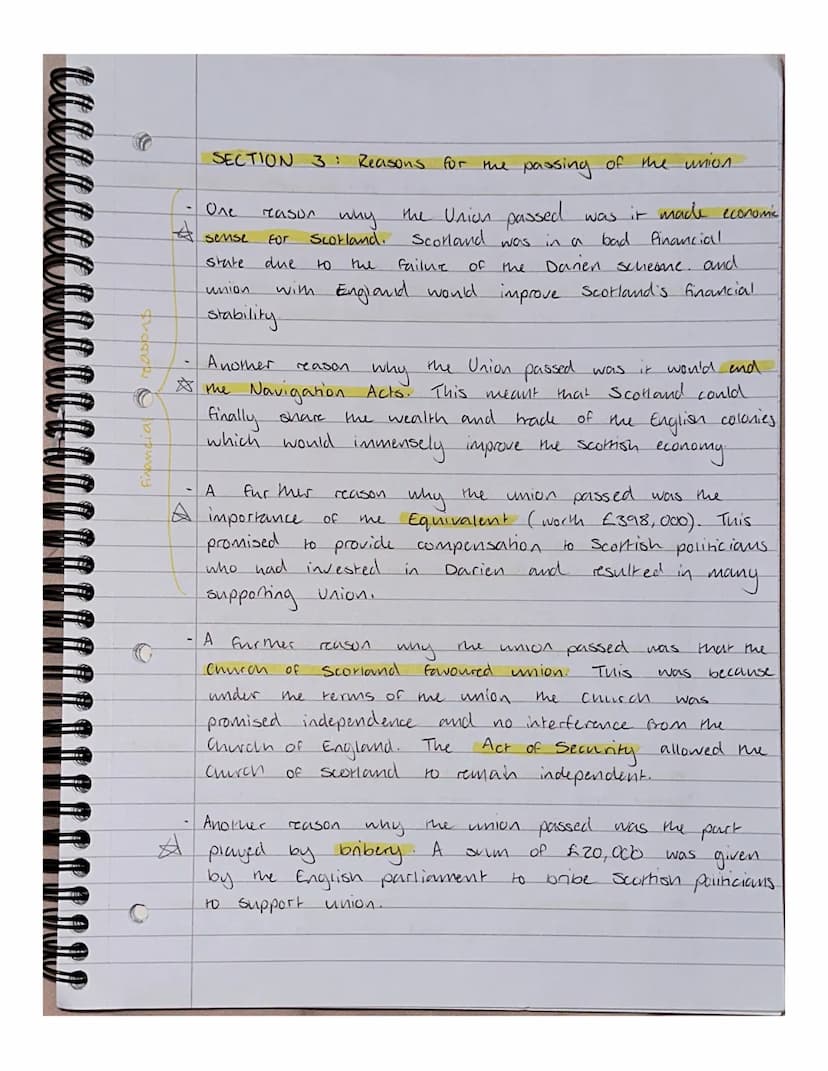 SECTION 3 : Reasons for the passing of the union
- One reason why the Union passed was it made economic
sense for Scotland. Scotland was in a bad financial
state due to the failure of the Darien scheme. and
union with England would improve Scotland's financial
stability.
- Another reason why the Union passed was it would end
the Navigation Acts. This meant that Scotland could
finally share the wealth and trade of the English colonies
which would immensely improve the scottish economy.
- A further reason why the union passed was the
importance of the Equivalent (worth £398,000). This
promised to provide compensation to Scottish politicians
who had invested in Darien and resulted in many
supporting Union.
- A further reason why the union passed was that the
Church of Scotland favoured union. This was because
under the terms of the union the Church was
promised independence and no interference from the
Church of England. The Act of Security allowed the
Church of Scotland to remain independent.
- Another reason why the union passed was the part
played by bribery. A sum of £20,000 was given
by the English parliament to bribe Scottish politicians
to support union.
financial reasons